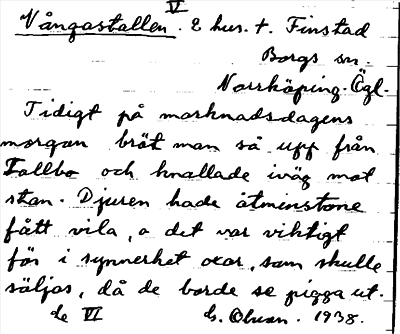 V
Vångastallen. 2 hus. t. Finstad
Borgs sn.
Norrköping. Ögl.
Tidigt på marknadsdagens
morgon bröt man så upp från
Fallbo och knallade iväg mot
stan. Djuren hade åtminstone
fått vila, o det var viktigt
för i synnerhet oxar, som skulle
säljas, då de borde se pigga ut.
de VI G. Olsson. 1938.